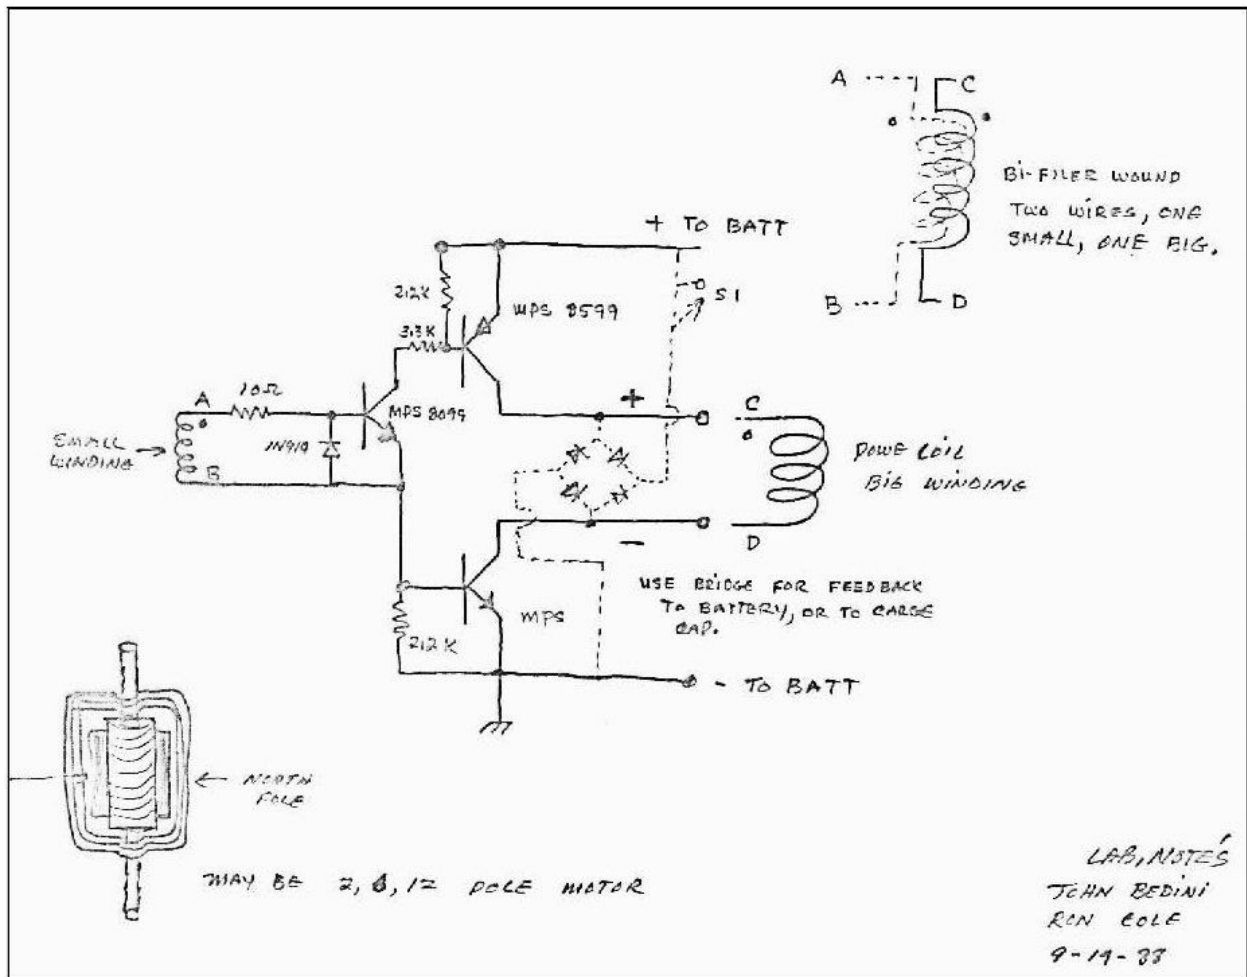 A
C
BI-FILER WOUND
TWO WIRES, ONE
SMALL, ONE BIG.
B
D
+ TO BATT
S1
2.2K
MPS 8599
3.3K
10Ω
A
MPS 8099
1N914
SMALL
WINDING
B
+
C
POWE COIL
BIG WINDING
-
D
USE BRIDGE FOR FEEDBACK
TO BATTERY, OR TO CARGE
CAP.
MPS
2.2K
- TO BATT
NORTH
POLE
MAY BE 2, 6, 12 POLE MOTOR
LAB, NOTE'S
JOHN BEDINI
RON COLE